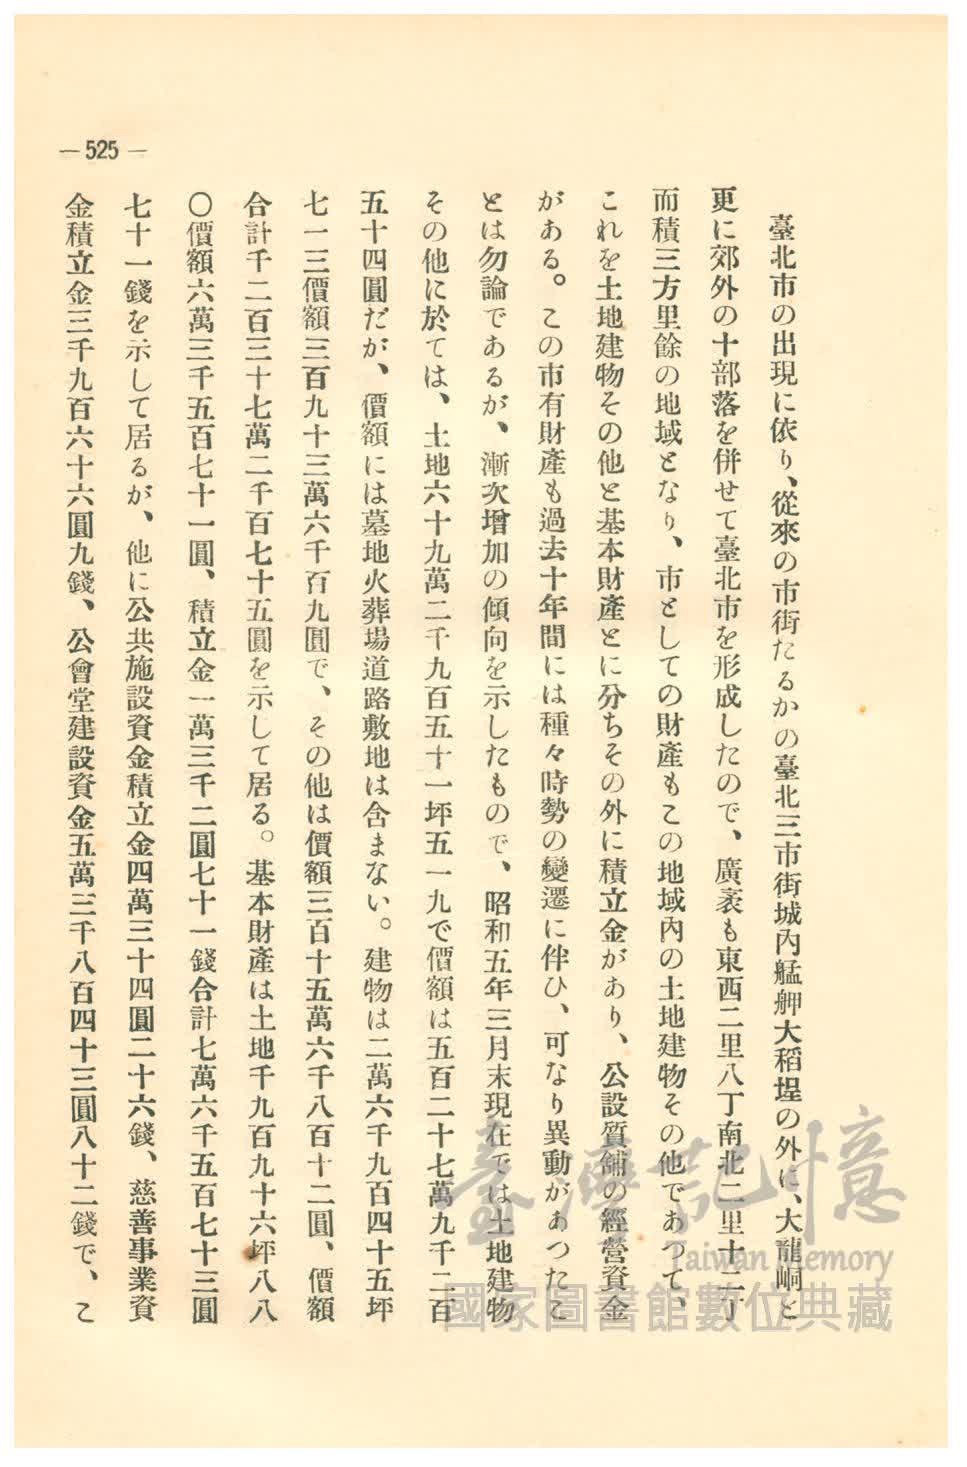 — 525 —
臺北市の出現に依り、從來の市街たるかの臺北三市街城內艋舺大稻埕の外に、大龍峒と
更に郊外の十部落を併せて臺北市を形成したので、廣袤も東西二里八丁南北二里十二丁
而積三方里餘の地域となり、市としての財產もこの地域內の土地建物その他であつて、
これを土地建物その他と基本財產とに分ちその外に積立金があり、公設質舖の經營資金
がある。この市有財產も過去十年間には種々時勢の變遷に伴ひ、可なり異動があつたこ
とは勿論であるが、漸次增加の傾向を示したもので、昭和五年三月末現在では土地建物
その他に於ては、土地六十九萬二千九百五十一坪五一九で價額は五百二十七萬九千二百
五十四圓だが、價額には墓地火葬場道路敷地は含まない。建物は二萬六千九百四十五坪
七一三價額三百九十三萬六千百九圓で、その他は價額三百十五萬六千八百十二圓、價額
合計千二百三十七萬二千百七十五圓を示して居る。基本財產は土地千九百九十六坪八八
〇價額六萬三千五百七十一圓、積立金一萬三千二圓七十一錢合計七萬六千五百七十三圓
七十一錢を示して居るが、他に公共施設資金積立金四萬三十四圓二十六錢、慈善事業資
金積立金三千九百六十六圓九錢、公會堂建設資金五萬三千八百四十三圓八十二錢で、こ
臺灣記憶
Taiwan Memory
國家圖書館數位典藏